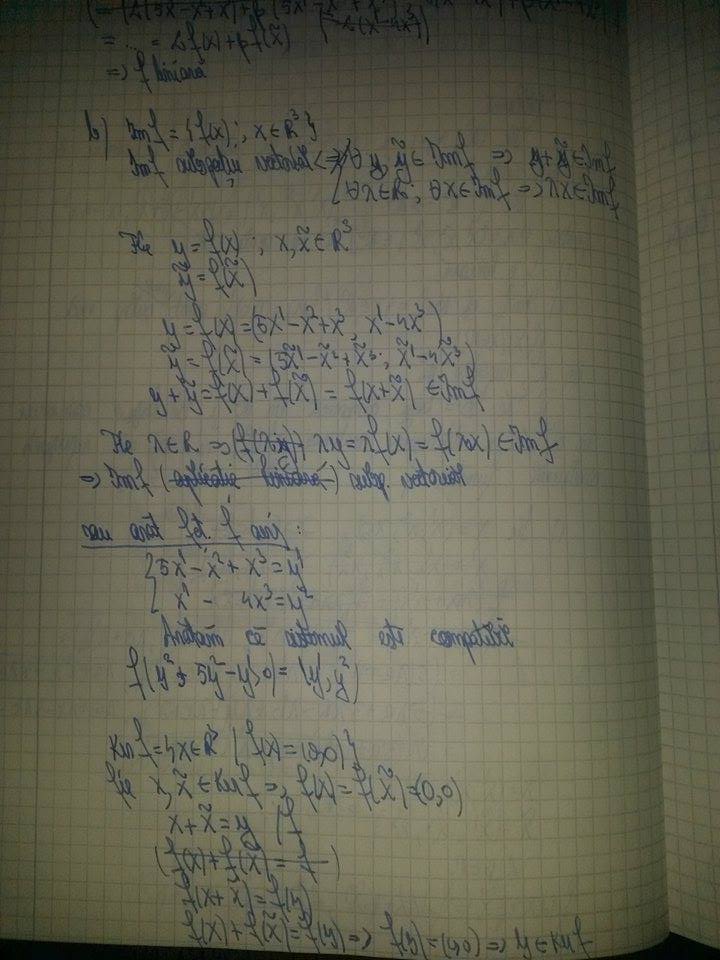 = ... = αf(x)+βf(x̃)
=> f liniară
b) Imf = {f(x); x∈R³}
Imf subspațiu vectorial <=> ∀ y, ỹ ∈ Imf => y+ỹ ∈ Imf
∀λ∈R; ∀x∈Imf => λx∈Imf
Fie y = f(x) ; x, x̃ ∈ R³
ỹ = f(x̃)
y = f(x) = (5x¹-x²+x³, x¹-4x³)
ỹ = f(x̃) = (5x̃¹-x̃²+x̃³; x̃¹-4x̃³)
y+ỹ = f(x)+f(x̃) = f(x+x̃) ∈ Imf
Fie λ∈R => λy = λf(x) = f(λx) ∈ Imf
=> Imf (aplicație liniară) subsp vectorial
sau arăt că f :
5x¹-x²+x³ = y¹
x¹ - 4x³ = y²
Arătăm că sistemul este compatibil
f(y², 5y²-y¹, 0) = (y¹, y²)
Kerf = {x∈R³ | f(x) = (0,0)}
fie x, x̃ ∈ Kerf => f(x) = f(x̃) = (0,0)
x+x̃ = y | f
(f(x)+f(x̃) = f )
f(x+x̃) = f(y)
f(x)+f(x̃) = f(y) => f(y) = (0,0) => y ∈ Kerf